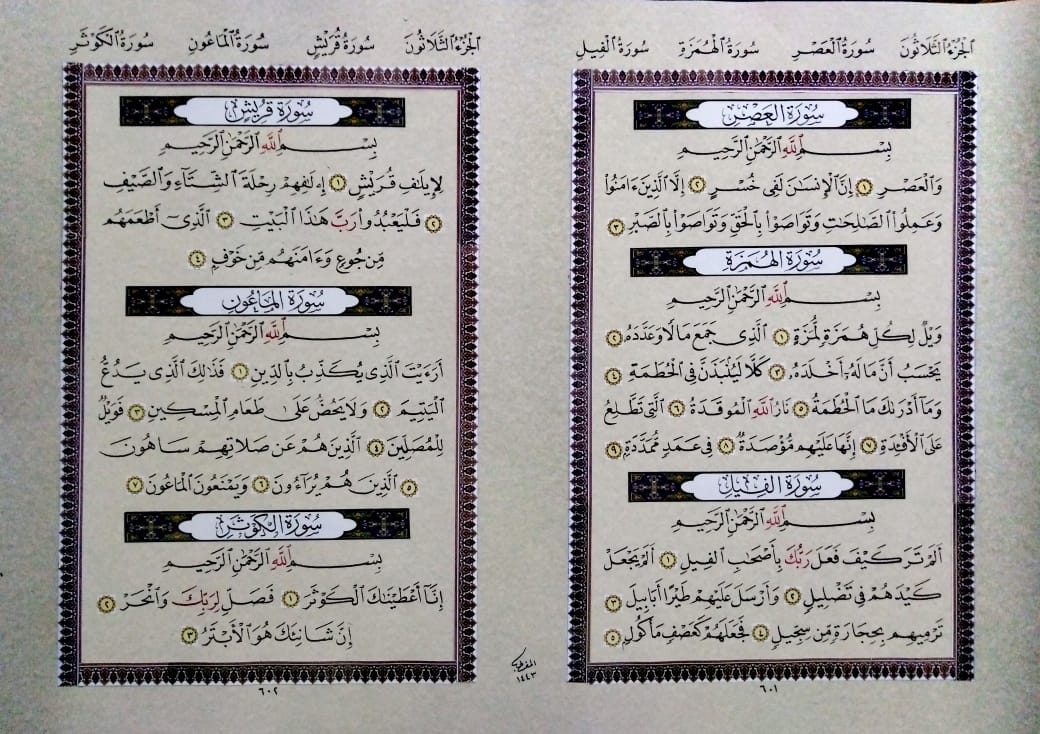 الجزء الثلاثون سورة العصر سورة الهمزة سورة الفيل
سُورَةُ العَصْرِ
بِسْمِ اللَّهِ الرَّحْمَٰنِ الرَّحِيمِ
وَالْعَصْرِ ١ إِنَّ الْإِنسَٰنَ لَفِي خُسْرٍ ٢ إِلَّا الَّذِينَ ءَامَنُوا
وَعَمِلُوا الصَّٰلِحَٰتِ وَتَوَاصَوْا بِالْحَقِّ وَتَوَاصَوْا بِالصَّبْرِ ٣
سُورَةُ الهُمَزَةِ
بِسْمِ اللَّهِ الرَّحْمَٰنِ الرَّحِيمِ
وَيْلٌ لِّكُلِّ هُمَزَةٍ لُّمَزَةٍ ١ الَّذِي جَمَعَ مَالًا وَعَدَّدَهُ ٢
يَحْسَبُ أَنَّ مَالَهُ أَخْلَدَهُ ٣ كَلَّا لَيُنبَذَنَّ فِي الْحُطَمَةِ ٤
وَمَا أَدْرَىٰكَ مَا الْحُطَمَةُ ٥ نَارُ اللَّهِ الْمُوقَدَةُ ٦ الَّتِي تَطَّلِعُ
عَلَى الْأَفْـِٔدَةِ ٧ إِنَّهَا عَلَيْهِم مُّؤْصَدَةٌ ٨ فِي عَمَدٍ مُّمَدَّدَةٍ ٩
سُورَةُ الفِيلِ
بِسْمِ اللَّهِ الرَّحْمَٰنِ الرَّحِيمِ
أَلَمْ تَرَ كَيْفَ فَعَلَ رَبُّكَ بِأَصْحَٰبِ الْفِيلِ ١ أَلَمْ يَجْعَلْ
كَيْدَهُمْ فِي تَضْلِيلٍ ٢ وَأَرْسَلَ عَلَيْهِمْ طَيْرًا أَبَابِيلَ ٣
تَرْمِيهِم بِحِجَارَةٍ مِّن سِجِّيلٍ ٤ فَجَعَلَهُمْ كَعَصْفٍ مَّأْكُولٍ ٥
٦٠١
الجزء الثلاثون سورة قريش سورة الماعون سورة الكوثر
سُورَةُ قُرَيْشٍ
بِسْمِ اللَّهِ الرَّحْمَٰنِ الرَّحِيمِ
لِإِيلَٰفِ قُرَيْشٍ ١ إِۦلَٰفِهِمْ رِحْلَةَ الشِّتَاءِ وَالصَّيْفِ
٢ فَلْيَعْبُدُوا رَبَّ هَٰذَا الْبَيْتِ ٣ الَّذِي أَطْعَمَهُم
مِّن جُوعٍ وَءَامَنَهُم مِّنْ خَوْفٍ ٤
سُورَةُ المَاعُونِ
بِسْمِ اللَّهِ الرَّحْمَٰنِ الرَّحِيمِ
أَرَءَيْتَ الَّذِي يُكَذِّبُ بِالدِّينِ ١ فَذَٰلِكَ الَّذِي يَدُعُّ
الْيَتِيمَ ٢ وَلَا يَحُضُّ عَلَىٰ طَعَامِ الْمِسْكِينِ ٣ فَوَيْلٌ
لِّلْمُصَلِّينَ ٤ الَّذِينَ هُمْ عَن صَلَاتِهِمْ سَاهُونَ
٥ الَّذِينَ هُمْ يُرَاءُونَ ٦ وَيَمْنَعُونَ الْمَاعُونَ ٧
سُورَةُ الكَوْثَرِ
بِسْمِ اللَّهِ الرَّحْمَٰنِ الرَّحِيمِ
إِنَّا أَعْطَيْنَٰكَ الْكَوْثَرَ ١ فَصَلِّ لِرَبِّكَ وَانْحَرْ ٢
إِنَّ شَانِئَكَ هُوَ الْأَبْتَرُ ٣
٦٠٢
١٤٤٣